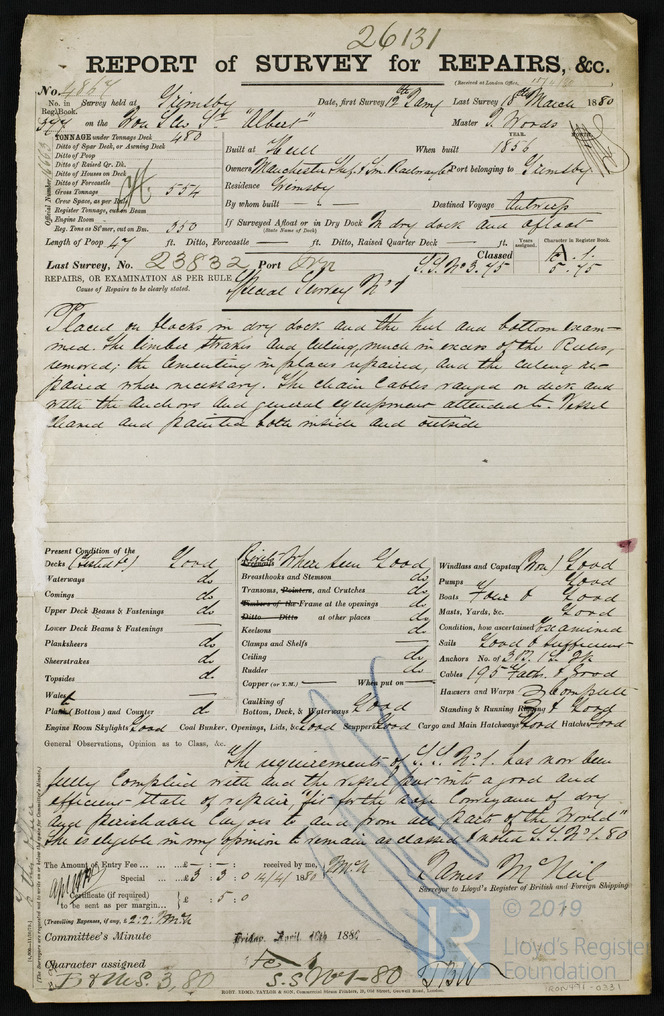 26131
REPORT of SURVEY for REPAIRS, &c.
(Received at London Office,
No. 4867
No. in Survey held at Grimsby Date, first Survey 12th Jany Last Survey 18th March 1880
Reg. Book.
on the Iron Scw Sr "Albert" Master T. Woods
TONNAGE under Tonnage Deck 480
Ditto of Spar Deck, or Awning Deck
Ditto of Poop
Ditto of Raised Qr. Dk.
Ditto of Houses on Deck
Ditto of Forecastle
Gross Tonnage 554
Crew Space, as per Rule
Register Tonnage, cut on Beam
Engine Room
Reg. Tons as St'mer, cut on Bm. 350
Official Number
YEAR. MONTH.
Built at Hull When built 1856
Owners Manchester Shef. & Lin. Railway Co Port belonging to Grimsby
Residence Grimsby
By whom built — — Destined Voyage Antwerp
If Surveyed Afloat or in Dry Dock In dry dock and afloat
(State Name of Dock)
Length of Poop 47 ft. Ditto, Forecastle — ft. Ditto, Raised Quarter Deck — ft.
Years assigned. Character in Register Book.
Last Survey, No. 23832 Port Gry Classed S.S. No 3. 75 A. 1.
5. 75
REPAIRS, OR EXAMINATION AS PER RULE Special Survey No 1
Cause of Repairs to be clearly stated.
Placed on blocks in dry dock and the hull and bottom exam-
ined. The limber strakes and ceiling, much in excess of the Rules,
removed; the cementing in places repaired, and the ceiling re-
paired where necessary. The chain cables ranged on deck and
with the anchors and general equipment attended to. Vessel
cleaned and painted both inside and outside
Present Condition of the
Decks (tested &c) Good
Waterways do
Comings do
Upper Deck Beams & Fastenings do
Lower Deck Beams & Fastenings —
Planksheers do
Sheerstrakes do
Topsides do
Wales —
Plate (Bottom) and Counter do
Treenails Rivets Where seen Good
Breasthooks and Stemson do
Transoms, Pointers, and Crutches do
Timbers of the Frame at the openings do
Ditto Ditto at other places do
Keelsons do
Clamps and Shelfs —
Ceiling do
Rudder do
Copper (or Y.M.) — When put on —
Caulking of
Bottom, Deck, & Waterways Good
Windlass and Capstan (Iron) Good
Pumps Good
Boats Four & Good
Masts, Yards, &c. Good
Condition, how ascertained Examined
Sails Good & Sufficient
Anchors No. of 3 B. 1 St. 2 K.
Cables 195 Faths & good
Hawsers and Warps 3 Complete
Standing & Running Rigging & Good
Engine Room Skylights Good Coal Bunker, Openings, Lids, &c. Good Scuppers Good Cargo and Main Hatchways Good Hatches Good
General Observations, Opinion as to Class, &c.
The requirements of S.S. No 1. has now been
fully complied with and the vessel put into a good and
efficient state of repair, "fit for the safe conveyance of dry
and perishable Cargoes to and from all parts of the World"
She is eligible in my opinion to remain as classed & noted S.S. No 1. 80
The Amount of Entry Fee £ — : — : received by me,
Special £ 3 : 3 : 0 14/4/1880 McN
Certificate (if required) £ : 5 : 0
to be sent as per margin
(Travelling Expenses, if any, £ 2.2. McN
James McNeil
Surveyor to Lloyd's Register of British and Foreign Shipping
Committee's Minute Friday April 16th 1880
Character assigned
B & M.S. 3, 80 S.S No 1-80
HART. EDMD. TAYLOR & SON, Commercial Steam Printers, 19, Old Street, Goswell Road, London.
(The Surveyors are requested not to write on or below the space for Committee's Minute.)
© 2019
LR
Lloyd's Register
Foundation
IRON491-0331